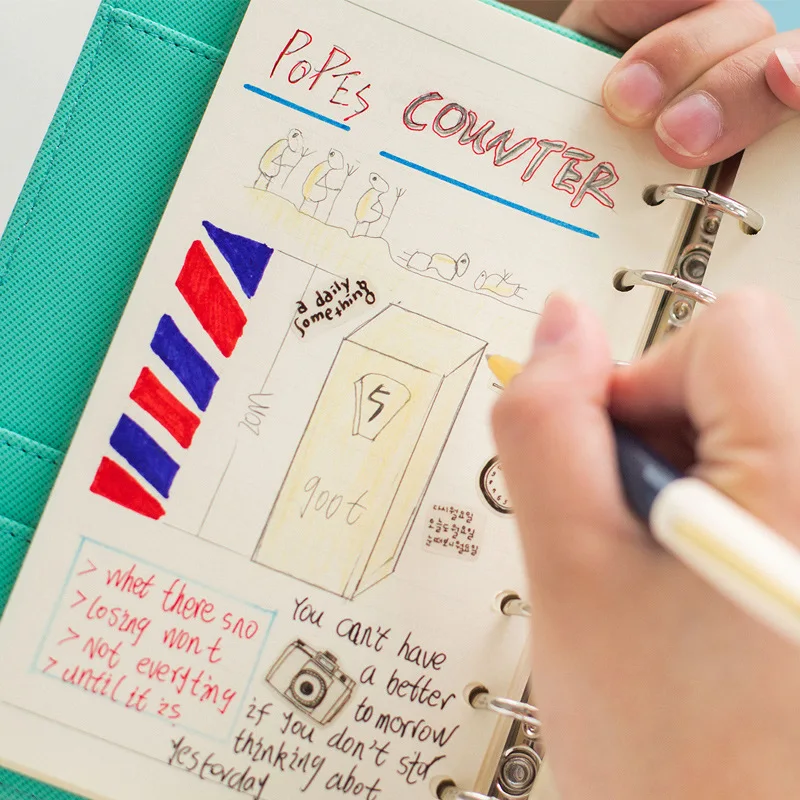 POPES COUNTER
a daily
something
20M
5
goot
> whet there sno
> losing wont
> Not everyting
> until it is
You can't have
a better
tomorrow
if you don't
thinking abot
yesterday